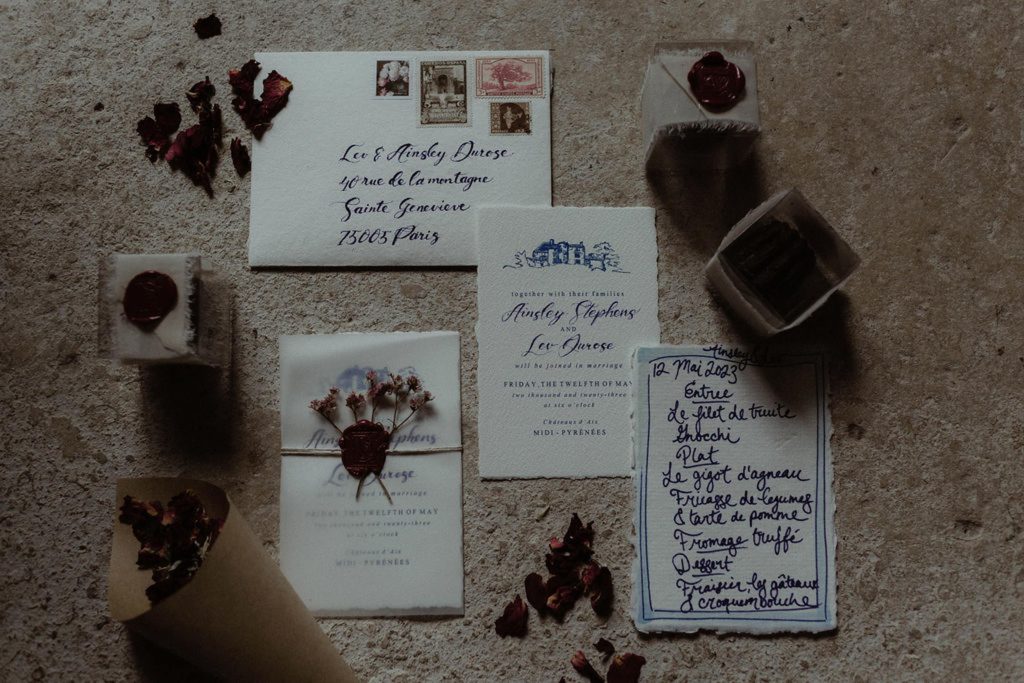 Lev & Ainsley Durose
40 rue de la montagne
Sainte Genevieve
75005 Paris
together with their families
Ainsley Stephens
AND
Lev Durose
will be joined in marriage
FRIDAY, THE TWELFTH OF MAY
two thousand and twenty-three
at six o'clock
Châteaux d'Aix
MIDI - PYRÉNÉES
Ainsley Stephens
Lev Durose
will be joined in marriage
FRIDAY, THE TWELFTH OF MAY
two thousand and twenty-three
at six o'clock
Châteaux d'Aix
MIDI - PYRÉNÉES
Ainsley & Lev
12 Mai 2023
Entrée
Le filet de truite
Gnocchi
Plat
Le gigot d'agneau
Fricasse de légumes
& tarte de pomme
Fromage truffé
Dessert
Fraisier, les gâteaux
& croquembouche